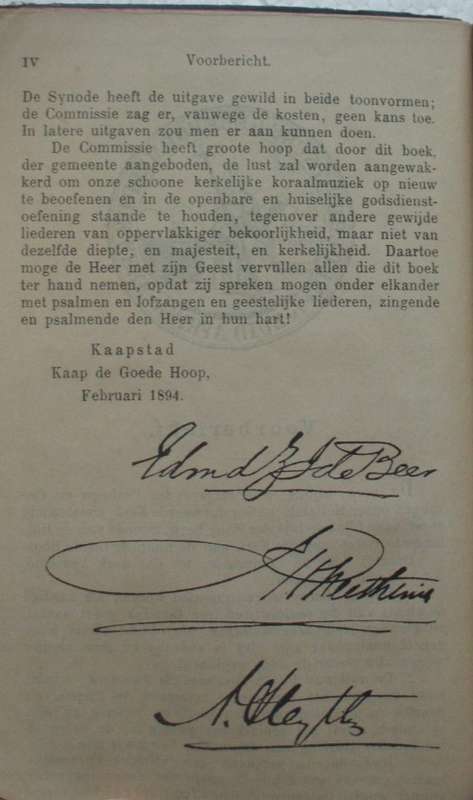 IV
Voorbericht.
De Synode heeft de uitgave gewild in beide toonvormen;
de Commissie zag er, vanwege de kosten, geen kans toe.
In latere uitgaven zou men er aan kunnen doen.
De Commissie heeft groote hoop dat door dit boek,
der gemeente aangeboden, de lust zal worden aangewak-
kerd om onze schoone kerkelijke koraalmuziek op nieuw
te beoefenen en in de openbare en huiselijke godsdienst-
oefening staande te houden, tegenover andere gewijde
liederen van oppervlakkiger bekoorlijkheid, maar niet van
dezelfde diepte, en majesteit, en kerkelijkheid. Daartoe
moge de Heer met zijn Geest vervullen allen die dit boek
ter hand nemen, opdat zij spreken mogen onder elkander
met psalmen en lofzangen en geestelijke liederen, zingende
en psalmende den Heer in hun hart!
Kaapstad
Kaap de Goede Hoop,
Februari 1894.
de Beer